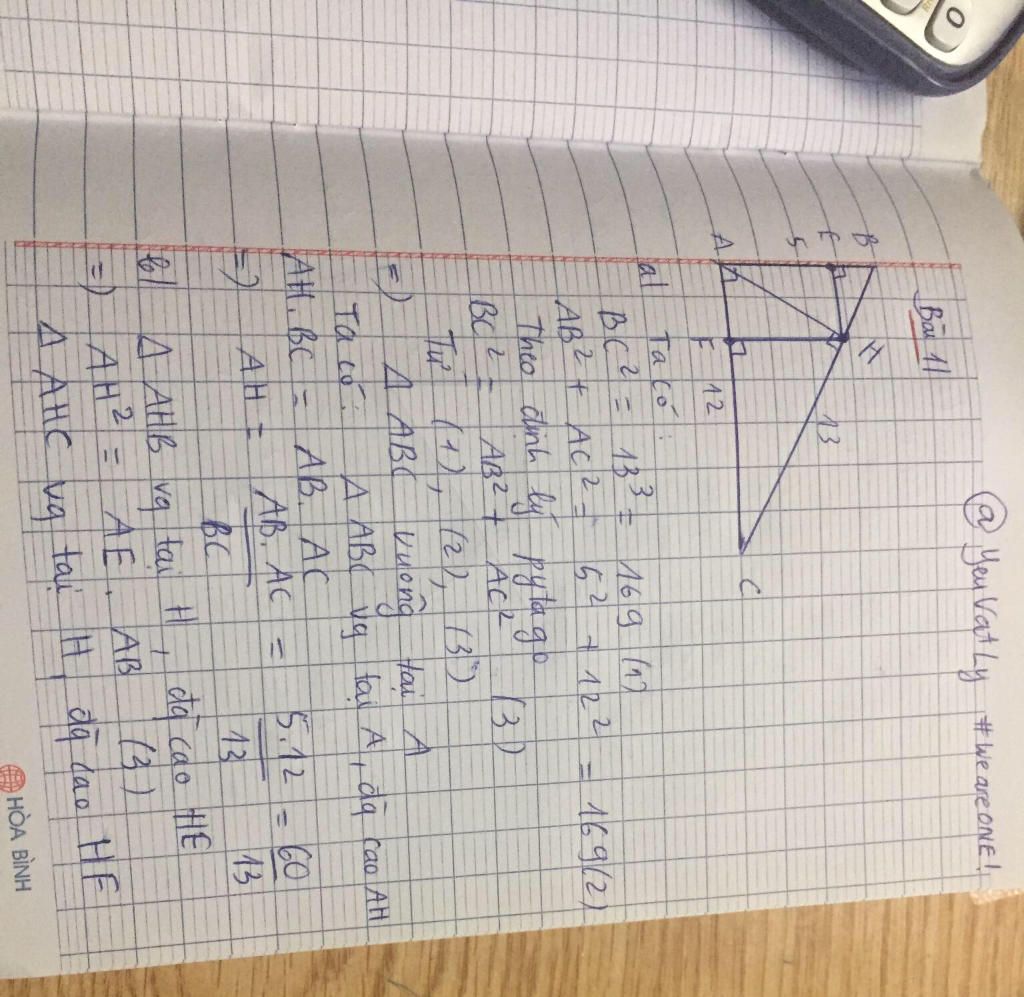 @ YeuVatLy #WeareONE!
Bài 11
B
H
E
5
13
A
F
12
C
a) Ta có:
BC² = 13³ = 169 (1)
AB² + AC² = 5² + 12² = 169 (2)
Theo định lý pytago
BC² = AB² + AC² (3)
Từ (1), (2), (3)
=) Δ ABC vuông tại A
Ta có: Δ ABC vg tại A, đg cao AH
AH. BC = AB. AC
=) AH = AB. AC / BC = 5.12 / 13 = 60 / 13
b) Δ AHB vg tại H, đg cao HE
=) AH² = AE. AB (3)
Δ AHC vg tại H, đg cao HF
HÒA BÌNH
0